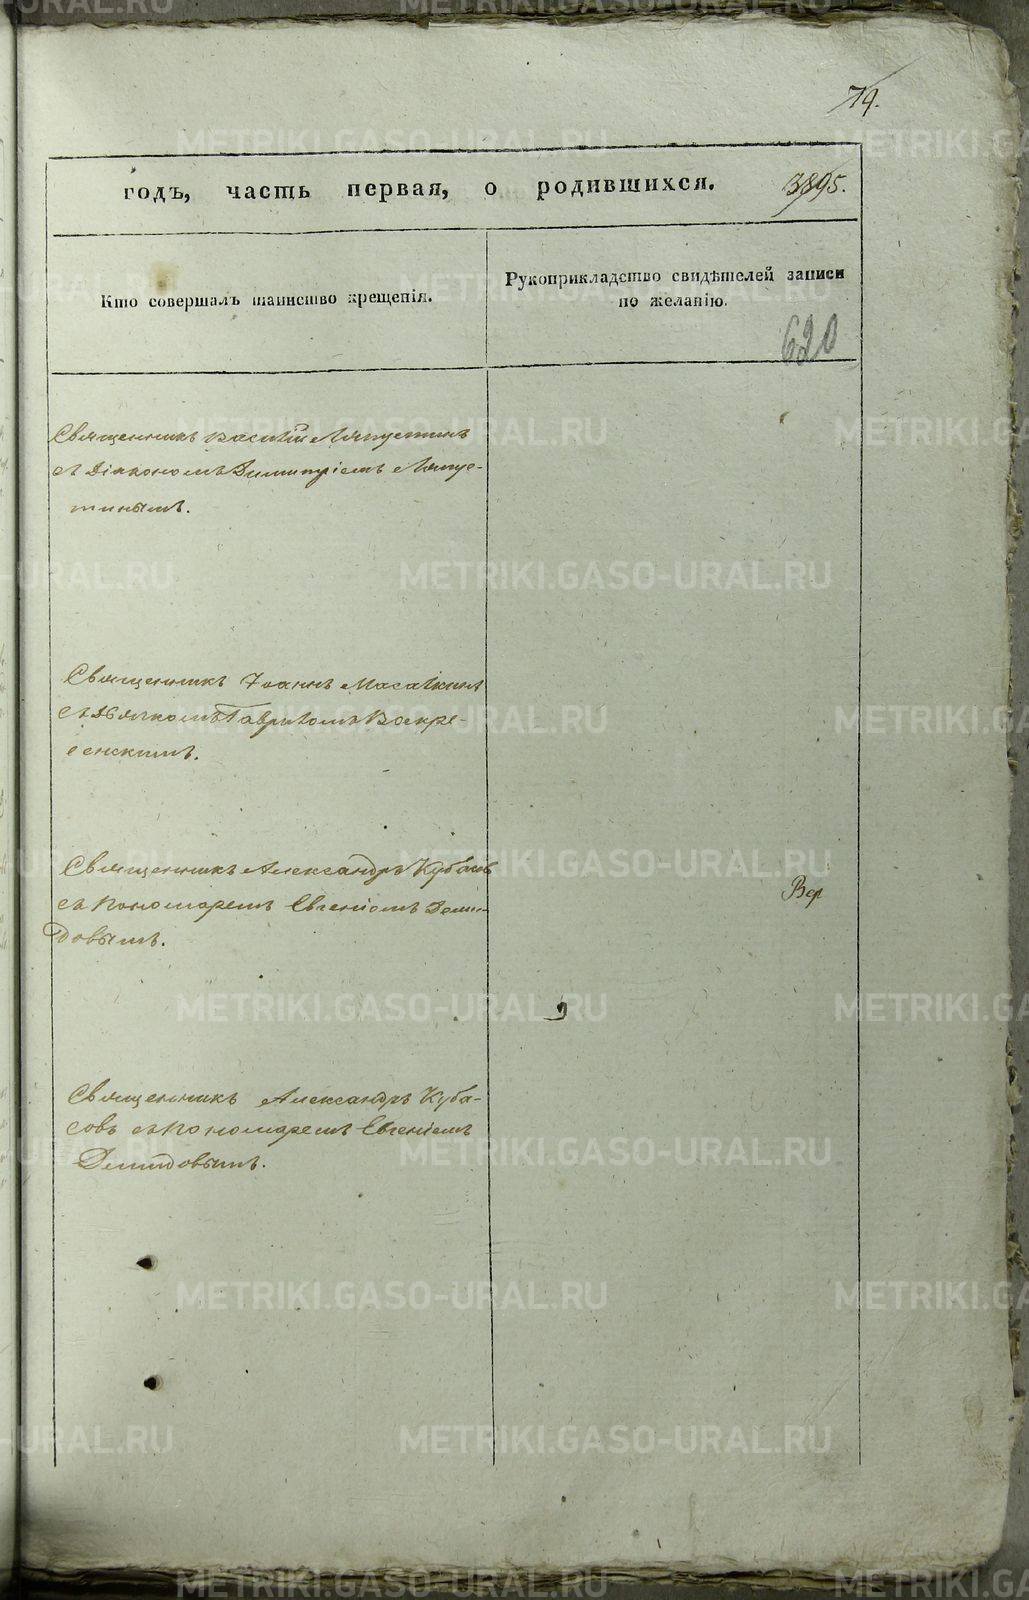 74.
годъ, часть первая, о родившихся. 3895.
Кто совершалъ таинство крещенія.
Рукоприкладство свидѣтелей записи
по желанію.
620
Священникъ Василій Ляпустинъ
съ Діакономъ Димитріемъ Ляпус-
тинымъ.
Священникъ Іоаннъ
съ Дьячкомъ Гавриломъ Воскре-
сенскимъ.
Священникъ Александръ Кубасовъ
съ Пономаремъ Евгеніемъ Деми-
довымъ.
Вер
Священникъ Александръ Куба-
совъ съ Пономаремъ Евгеніемъ
Демидовымъ.
METRIKI.GASO-URAL.RU